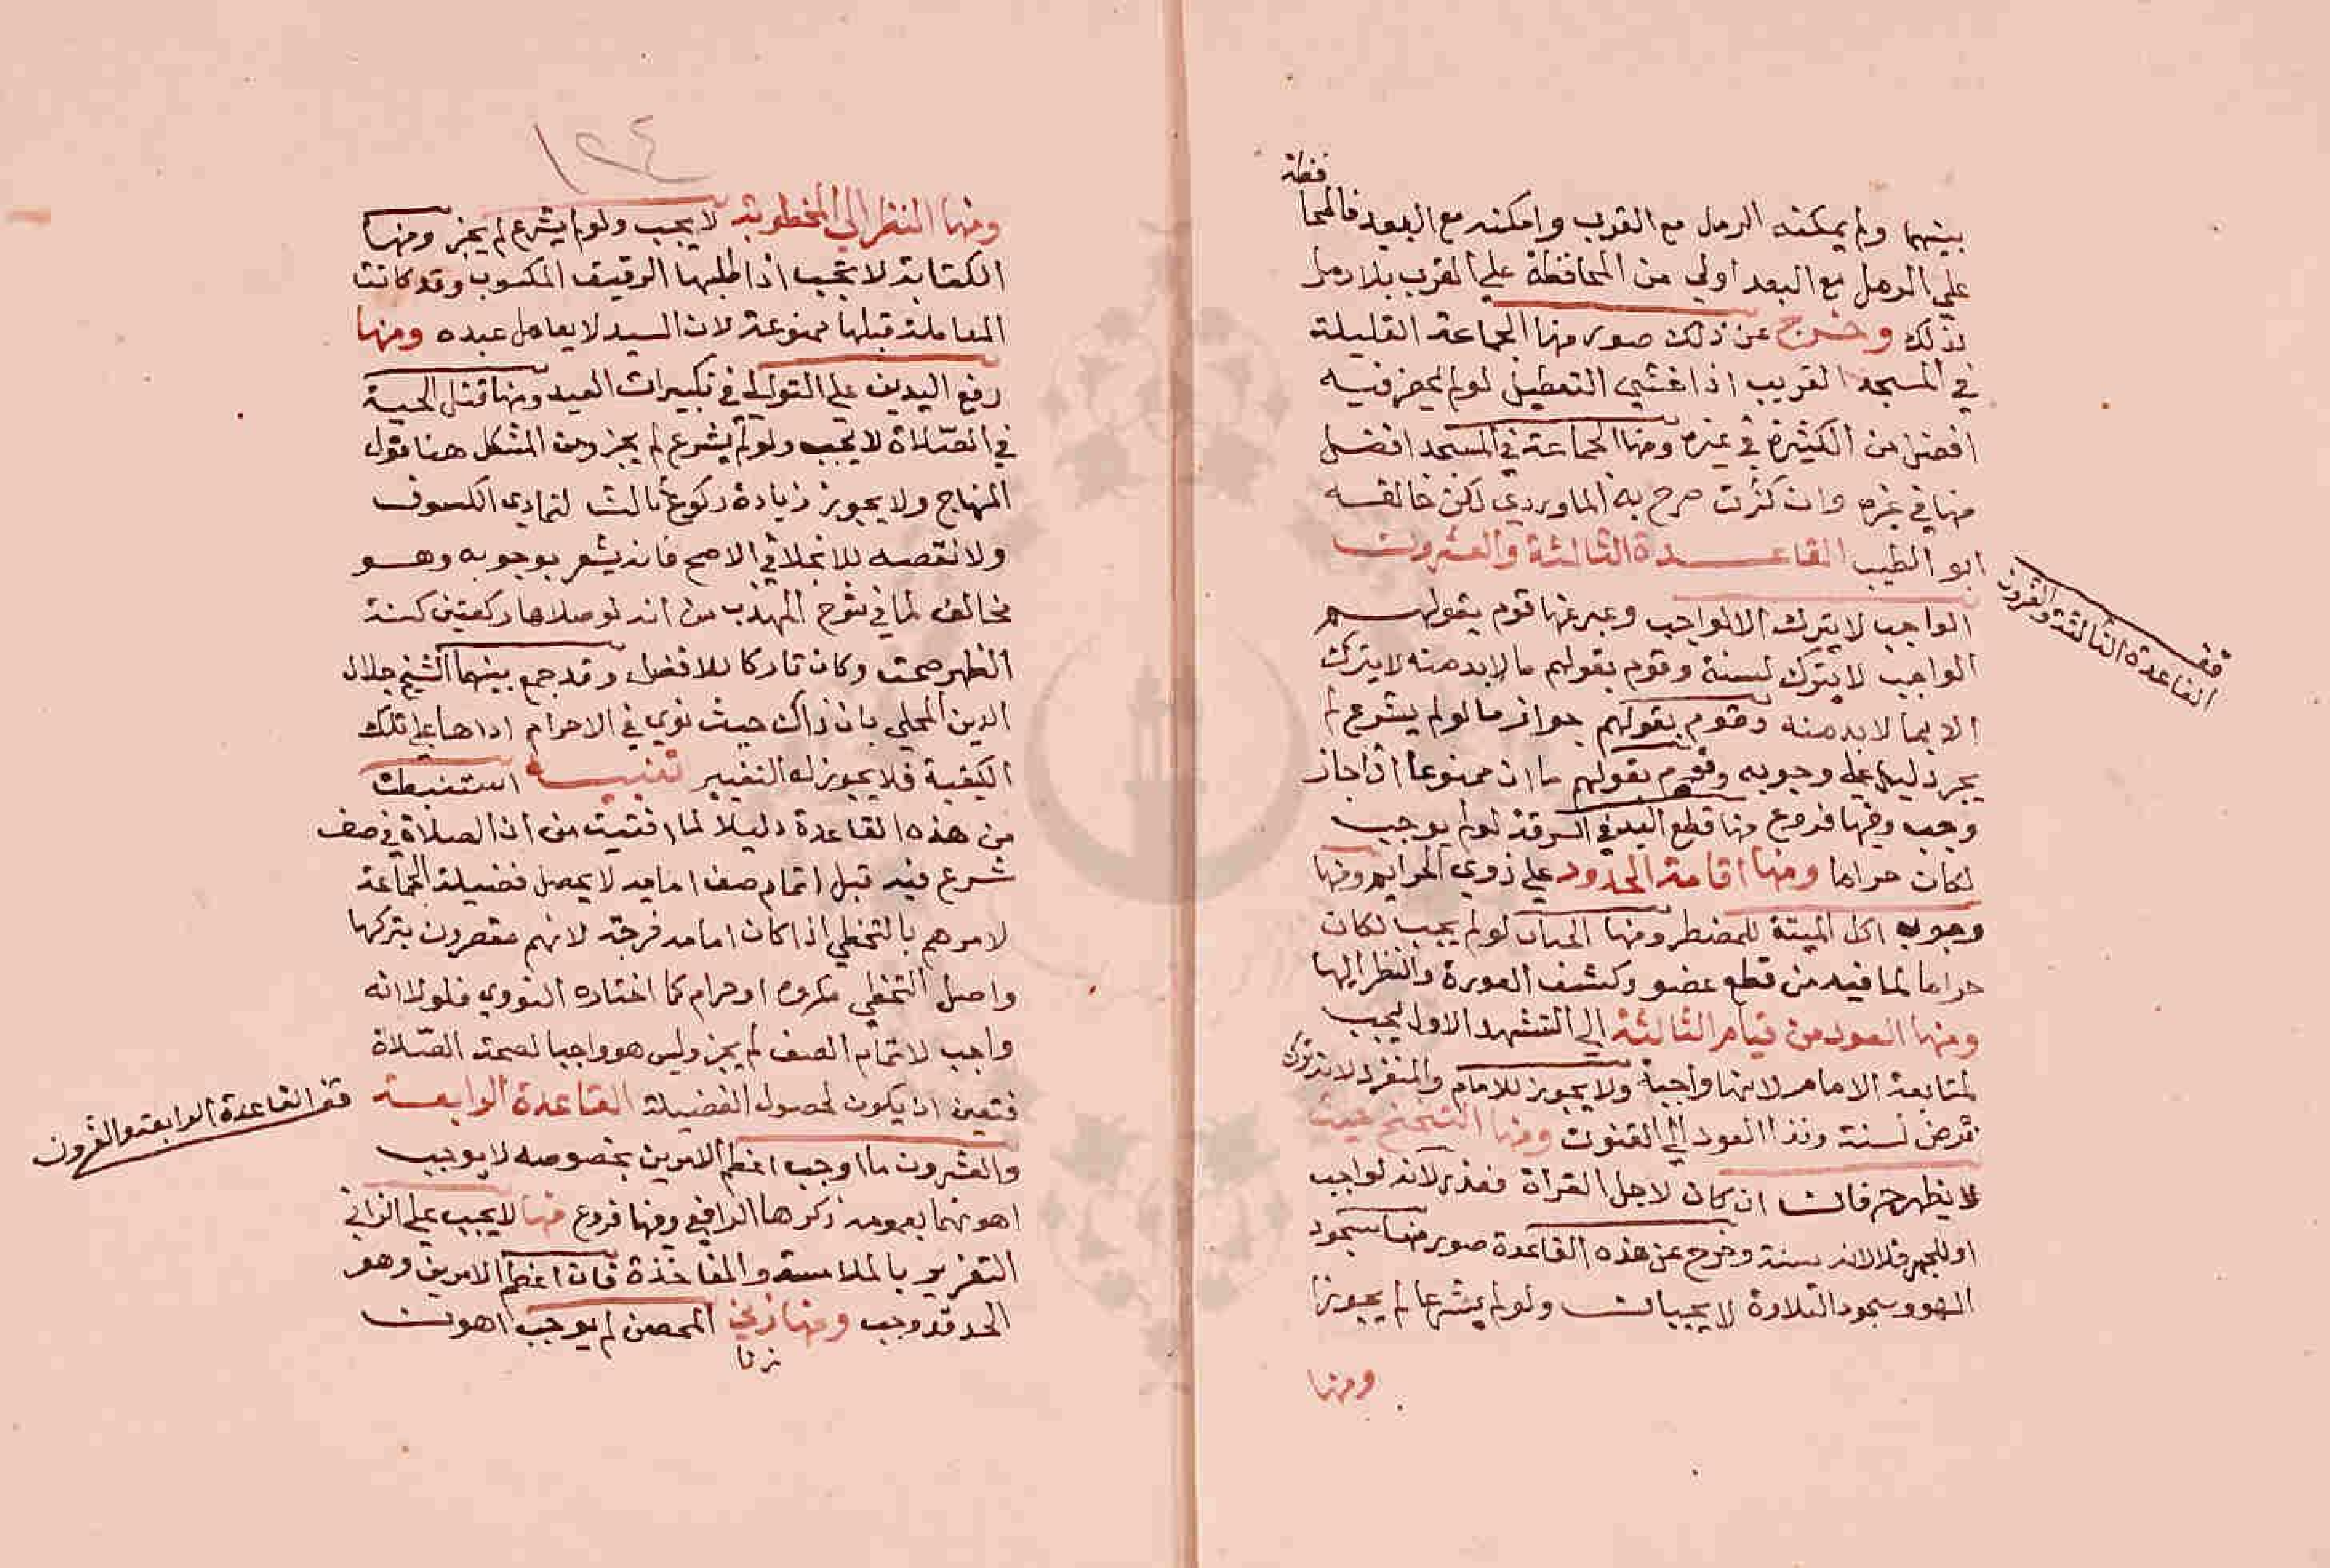 بينهما ولم يمكنه الرمل مع القرب وامكنه مع البعد فالمحا
فظة
علي الرمل مع البعد اولي من المحافظة علي القرب بلا رمل
لذلك وخرج عن ذلك صور منها الجماعة القليلة
في المسجد القريب اذا خشي التعطيل لو لم يحضر فيه
افضل من الكثيرة في غيره ومنها الجماعة في المسجد افضل
منها في غيره وان كثرت صرح به الماوردي لكن خالفه
ابو الطيب القاعدة الثالثة والعشرون
قف القاعدة الثالثة والعشرون
الواجب لا يترك الا لواجب وعبر عنها قوم بقولهم
الواجب لا يترك لسنة وقوم بقولهم ما لا بد منه لا يترك
الا بما لا بد منه وقوم بقولهم جواز ما لو لم يشرع لم
يجز دليل علي وجوبه وقوم بقولهم ما ان ممنوعا اذا جاز
وجب وفيها فروع منها قطع اليد في السرقة لو لم يوجب
لكان حراما ومنها اقامة الحدود علي ذوي الجرايم ومنها
وجوب اكل الميتة للمضطر ومنها الختان لو لم يجب لكان
حراما لما فيه من قطع عضو وكشف العورة والنظر اليها
ومنها العود من قيام الثالثة الي التشهد الاول يجب
لمتابعة الامام لانها واجبة ولا يجوز للامام والمنفرد لانه ترك
فرض لسنة وكذا العود الي القنوت ومنها التنحنح بحيث
لا يظهر حرفان ان كان لاجل القراة فعذر لانه لواجب
او للجهر فلا لانه سنة وخرج عن هذه القاعدة صور منها سجود
السهو وسجود التلاوة لا يجبان ولو لم يشرعا لم يجوزا
ومنها
١٩٤
ومنها النظر الي المخطوبة لا يجب ولو لم يشرع لم يجز ومنها
الكتابة لا تجب اذا طلبها الرقيق المكسوب وقد كانت
المعاملة قبلها ممنوعة لان السيد لا يعامل عبده ومنها
رفع اليدين علي التوالي في تكبيرات العيد ومنها قتل الحية
في الصلاة لا يجب ولو لم يشرع لم يجز ومن المشكل هنا قول
المنهاج ولا يجوز زيادة ركوع ثالث لتمادي الكسوف
ولا نقصه للانجلا في الاصح فانه يشعر بوجوبه وهو
مخالف لما في شرح المهذب من انه لو صلاها ركعتين كسنة
الظهر صحت وكان تاركا للافضل وقد جمع بينهما الشيخ جلال
الدين المحلي بان ذاك حيث نوي في الاحرام اداها علي تلك
الكيفية فلا يجوز له التغيير تنبيه استنبطت
من هذه القاعدة دليلا لما افتيت من ان الصلاة في صف
شرع فيه قبل اتمام صف امامه لا يحصل فضيلة الجماعة
لامرهم بالتخطي اذا كان امامه فرجة لانهم مقصرون بتركها
واصل التخطي مكروه او حرام كما اختاره النووي فلولا انه
واجب لاتمام الصف لم يجز وليس هو واجبا لصحة الصلاة
فتعين ان يكون لحصول الفضيلة القاعدة الرابعة
قف القاعدة الرابعة والعشرون
والعشرون ما اوجب اعظم الامرين بخصوصه لا يوجب
اهونهما بعمومه ذكرها الرافعي وفيها فروع منها لا يجب علي الزاني
التعزير بالملامسة والمفاخذة فان اعظم الامرين وهو
الحد قد وجب ومنها زني المحصن لم يوجب اهون
زنا